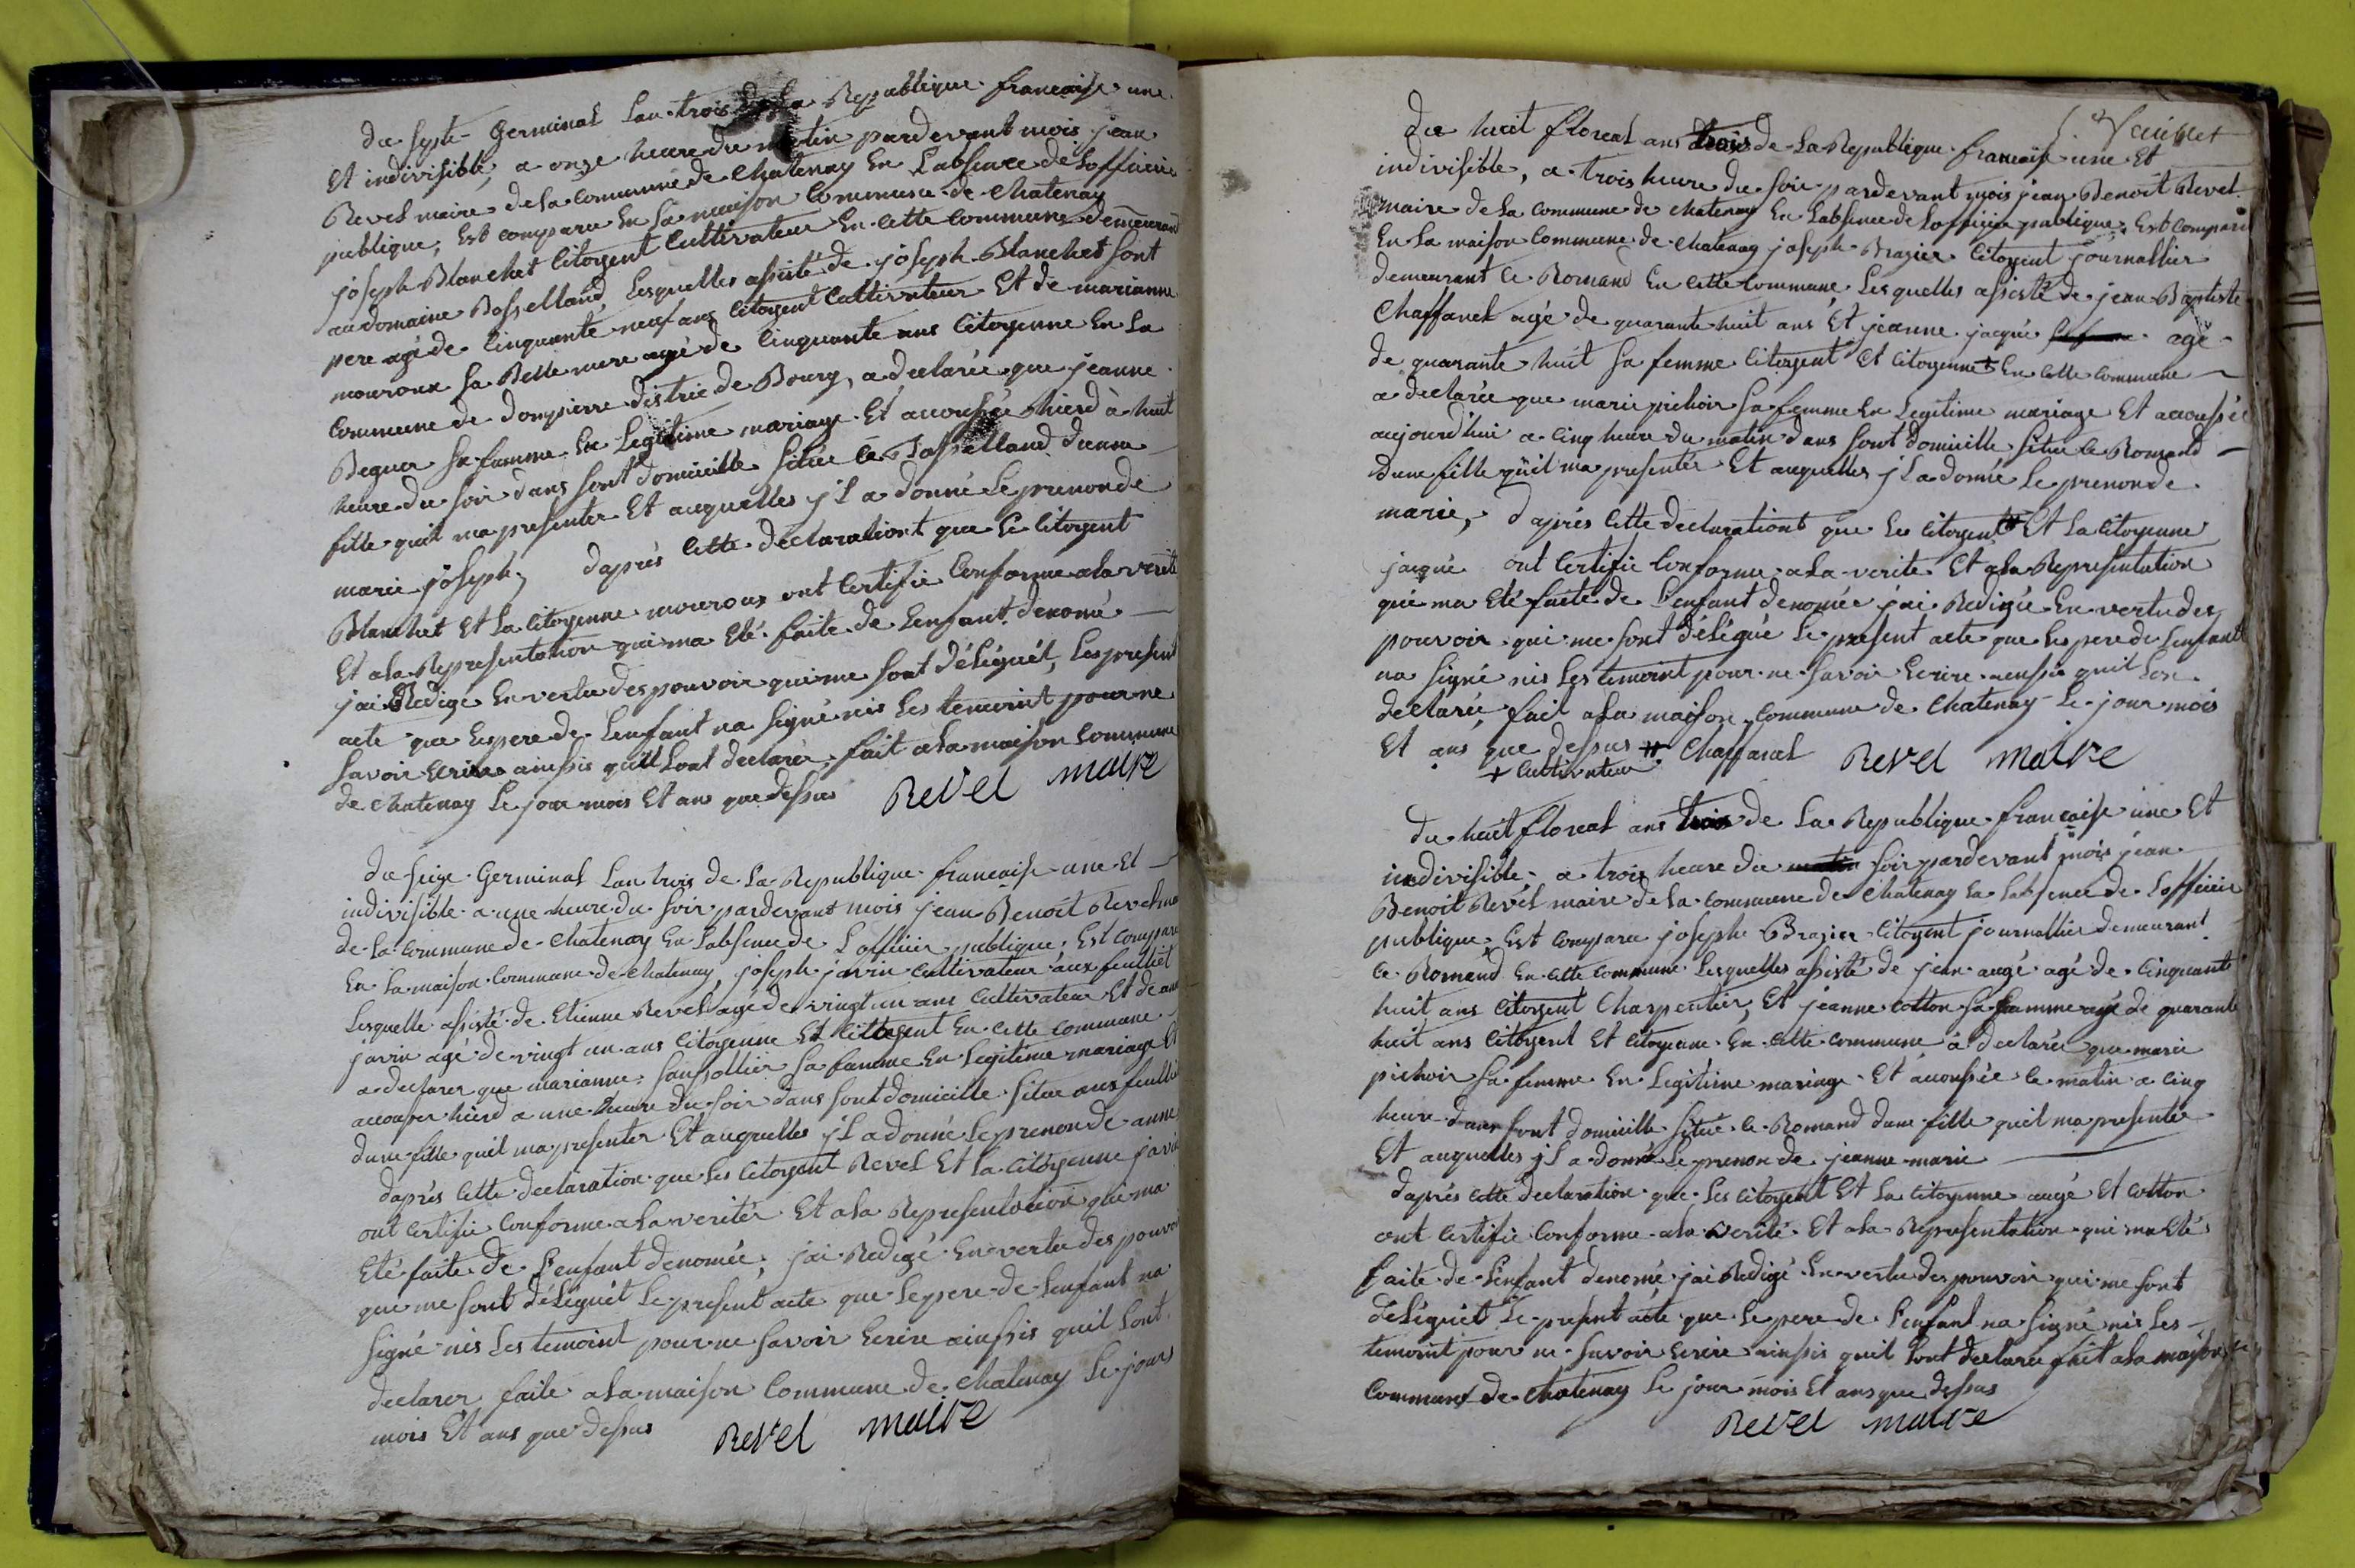 du septe Germinal Lan trois de La Republique francaise une
Et indivisible, a onze heure du matin pardevant mois jean
Revel maire de la Commune de Chatenay En L'absence de Lofficier
publique, Est comparu En la maison Commune de Chatenay
joseph Blanchet Citoyent Cultivateur En Cette Commune demeurant
au domaine Bosselland, Lesquelles assisté de joseph Blanchet sont
pere agé de Cinquante neuf ans Citoyent Cultivateur Et de marianne
mouroux sa Belle mere agé de Cinquante ans Citoyenne En La
Commune de dompierre distric de Bourg, a declarée que jeanne
Beguer sa famme En Legitime mariage Et accousée hierd à huit
heure du soir dans sont domicille situe Le Bosselland dunne
fille quil ma presenter Et auquelles jl a donné Le prenon de
marie joseph, daprés Cette déclarationt que Le Citoyent
Blanchet Et La Citoyenne mouroux ont Certifie Conforme a la verité
Et a la Representation qui ma Eté faite de Lenfant denomé
jai Redige En vertu des pouvoir qui me sont déléguét, Les present
acte que Les pere de Lenfant na signé nis Les temoint pour ne
savoir Ecrire ainssis quil Lont declarer, fait a la maison Commune
de Chatenay Le jour mois Et ans que dessus Revel maire
du seize Germinal Lan trois de La Republique francaise une Et
indivisible a une heure du soir pardevant mois jean Benoît Revel ma
de La Commune de Chatenay En Labsence de L'officier publique, Est comparu
En La maison Commune de Chatenay, joseph javin Cultivateur aux feulliet
Lesquelle assisté de Etienne Revel agé de vingt un ans Cultivateur Et de ann
javin agé de vingt un ans Citoyenne Et Cittoyent En Cette Commune
a declarer que marianne saussollier sa famme En Legitime mariage Et
accouser hierd a une heure du soir dans sont domicille situe aux feullie
dune fille quil ma presenter Et auquelles jl a donné Le prenon de anne
daprés Cette declaration que Les Citoyent Revel Et La Citoyenne javin
ont Certifie Conforme a La veritér Et a la Representation qui ma
Eté faite de L'enfant denomée, jai Redigé En vertu des pouvoi
qui me sont déléguét Le present acte que Le pere de Lenfant na
signé nis Les temoint pour ne savoir Ecrire ainssis quil Lont
declarer faite a La maison Commune de Chatenay Le jours
mois Et ans que dessus Revel maire
du huit floreal ans trois de La Republique francaise une Et
indivisible, a trois heure du soir pardevant mois jean Benoît Revel
maire de La Commune de Chatenay En Labsence de Lofficier publique, Est comparu
En La maison Commune de Chatenay joseph Brazier Citoyent journallier
demeurant Le Romand En Cette Commune, Lesquelles assisté de jean Baptiste
Chaffanel agé de quarante huit ans Et jeanne jaque sa femme agé
de quarante huit sa femme Citoyent Et Citoyenne + En Cette Commune
a declarée que marie pichoir sa femme En Legitime mariage Et accousée
aujourd'hui a Cinq heure du matin dans sont domicille situe Le Romand
dune fille quil ma presenter Et auquelles jl a donné Le prenon de
marie, daprés Cette declarationt que Les Citoyent # Et La Citoyenne
jaque ont Certifie Conforme a La verite Et a La Representation
qui ma Eté faite de L'enfant denomée jai Redigée En vertu des
pouvoir qui me sont délégué Le present acte que Les pere de Lenfant
na signé nis Les temoint pour ne savoir Ecrire ainssis quil Lon
declarée, fait a La maison Commune de Chatenay Le jour mois
Et ans que dessus # Chaffanel Revel maire
+ Cultivateur
du huit floreal ans trois de La Republique francaise une Et
indivisible a trois heure du matin soir pardevant mois jean
Benoit Revel maire de La Commune de Chatenay En Labsence de Lofficier
publique, Est Comparu joseph Brazier Citoyent journallier demeurant
Le Romand En Cette Commune Lesquelles assisté de jean augé agé de Cinquante
huit ans Citoyent Charpentier, Et jeanne Cotton sa famme agé de quarante
huit ans Citoyent Et Citoyenne En Cette Commune a declarée que marie
pichoir sa femme En Legitime mariage Et accousée Le matin a Cinq
heure dans sont domicille situe Le Romand dune fille quil ma presenter
Et auquelles jl a donné Le prenon de jeanne marie
daprés Cette declaration que Les Citoyent Et La Citoyenne augé Et Cotton
ont Certifie Conforme a la verité Et a la Representation qui ma Etés
faite de L'enfant denomé jai Redigé En vertu des pouvoir qui me sont
déléguét Le present acte que Le pere de L'enfant na signé nis Les
temoint pour ne savoir Ecrire ainssis quil Lont declarée fait a La maison
Commune de Chatenay Le jour mois Et ans que dessus
Revel maire